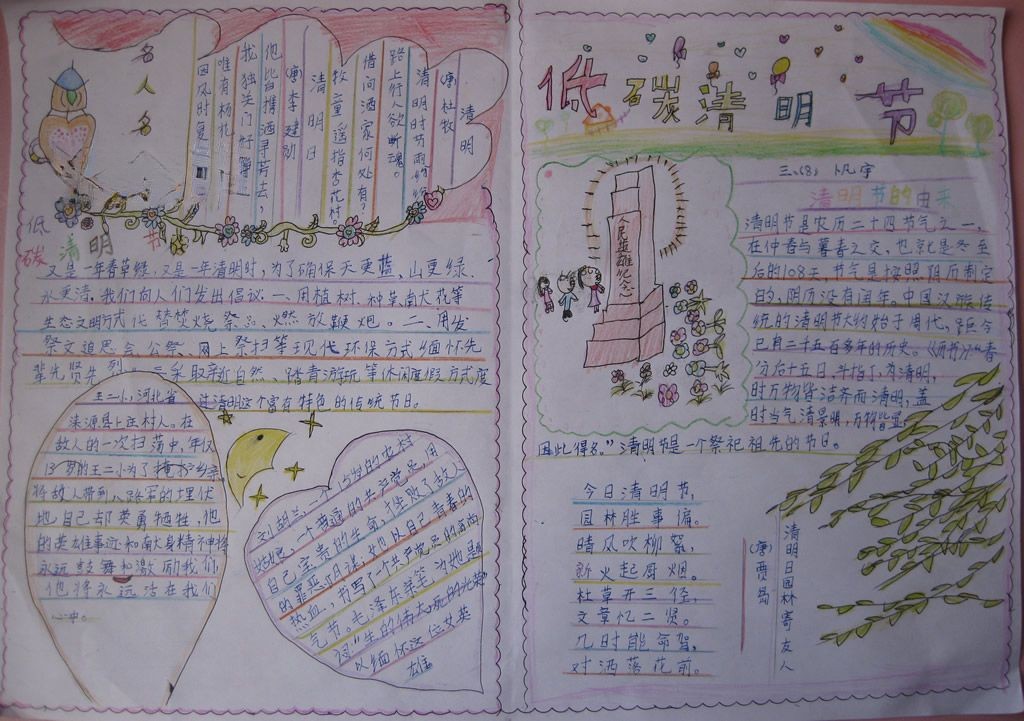 名人名
清明
(唐)杜牧
清明时节雨纷纷
路上行人欲断魂。
借问酒家何处有,
牧童遥指杏花村
清明日
(唐)李建勋
他皆携酒寻芳去,
我独关门好静
唯有杨花
因风时复
低碳清明节
又是一年春草绿,又是一年清明时,为了确保天更蓝、山更绿、
水更清,我们向人们发出倡议:一、用植树、种草、献花等
生态文明方式代替焚烧祭品、燃放鞭炮。二、用发
祭文追思会、公祭、网上祭扫等现代环保方式缅怀先
辈先贤先烈。三采取亲近自然、踏青游玩等休闲度假方式度
过清明这个富有特色的传统节日。
王二小,河北省
涞源县上庄村人。在
敌人的一次扫荡中,年仅
13岁的王二小为了掩护乡亲
将敌人带到八路军的埋伏
地自己却英勇牺牲,他
的英雄事迹和献身精神将
永远鼓舞和激励我们,
他将永远活在我们
心中。
刘胡兰,一个15岁的农村
姑娘,一个普通的共产党员,用
自己宝贵的生命,挫败了敌人
的罪恶阴谋,她以自己青春的
热血,书写了一个共产党员的
气节。毛泽东亲笔为她题
词:“生的伟大,死的光荣
以缅怀这位女英
雄
低碳清明节
三、(8) 卜凡宇
清明节的由来
人民英雄纪念
清明节是农历二十四节气之一,
在仲春与暮春之交,也就是冬至
后的108天。节气是按照阳历制定
的,阴历没有闰年。中国汉族传
统的清明节大约始于周代,距今
已有二十五百多年的历史。《历书》:“春
分后十五日,斗指丁,为清明,
时万物皆洁齐而清明,盖
时当气清景明,万物皆显,
因此得名。”清明节是一个祭祀祖先的节日。
今日清明节,
园林胜事偏。
晴风吹柳絮,
新火起厨烟。
杜草开三径,
文章忆二贤。
几时能命驾,
对酒落花前。
(唐)贾岛
清明日园林寄友人